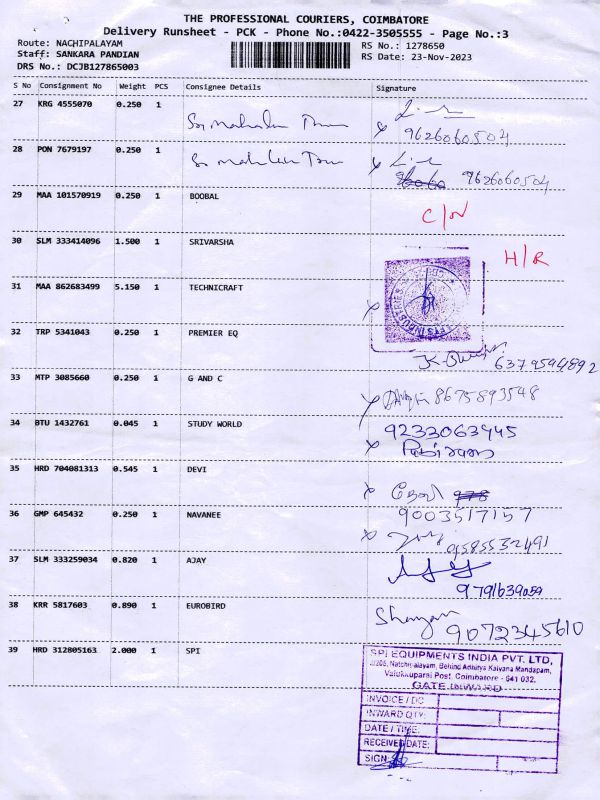 THE PROFESSIONAL COURIERS, COIMBATORE
Delivery Runsheet - PCK - Phone No.:0422-3505555 - Page No.:3
Route: NAGHIPALAYAM
Staff: SANKARA PANDIAN
DRS No.: DCJB127865003
RS No.: 1278650
RS Date: 23-Nov-2023
S No Consignment No Weight PCS Consignee Details Signature
27 KRG 4555070 0.250 1
9626060504
28 PON 7679197 0.250 1
9626060504
29 MAA 101570919 0.250 1 BOOBAL C/N
30 SLM 333414096 1.500 1 SRIVARSHA H/R
31 MAA 862683499 5.150 1 TECHNICRAFT
32 TRP 5341043 0.250 1 PREMIER EQ
6379594892
33 MTP 3085660 0.250 1 G AND C
8675893548
34 BTU 1432761 0.045 1 STUDY WORLD 9233063445
35 HRD 704081313 0.545 1 DEVI
தேவி
36 GMP 645432 0.250 1 NAVANEE 9003517157
9585532491
37 SLM 333259034 0.820 1 AJAY
9791639059
38 KRR 5817603 0.890 1 EUROBIRD
9072345610
39 HRD 312805163 2.000 1 SPI
SPI EQUIPMENTS INDIA PVT. LTD,
Behind Adhitya Kalyana Mandapam,
Post, Coimbatore - 641 032.
GATE INWARD
INVOICE / DC
INWARD QTY:
DATE / TIME:
RECEIVED DATE:
SIGN: